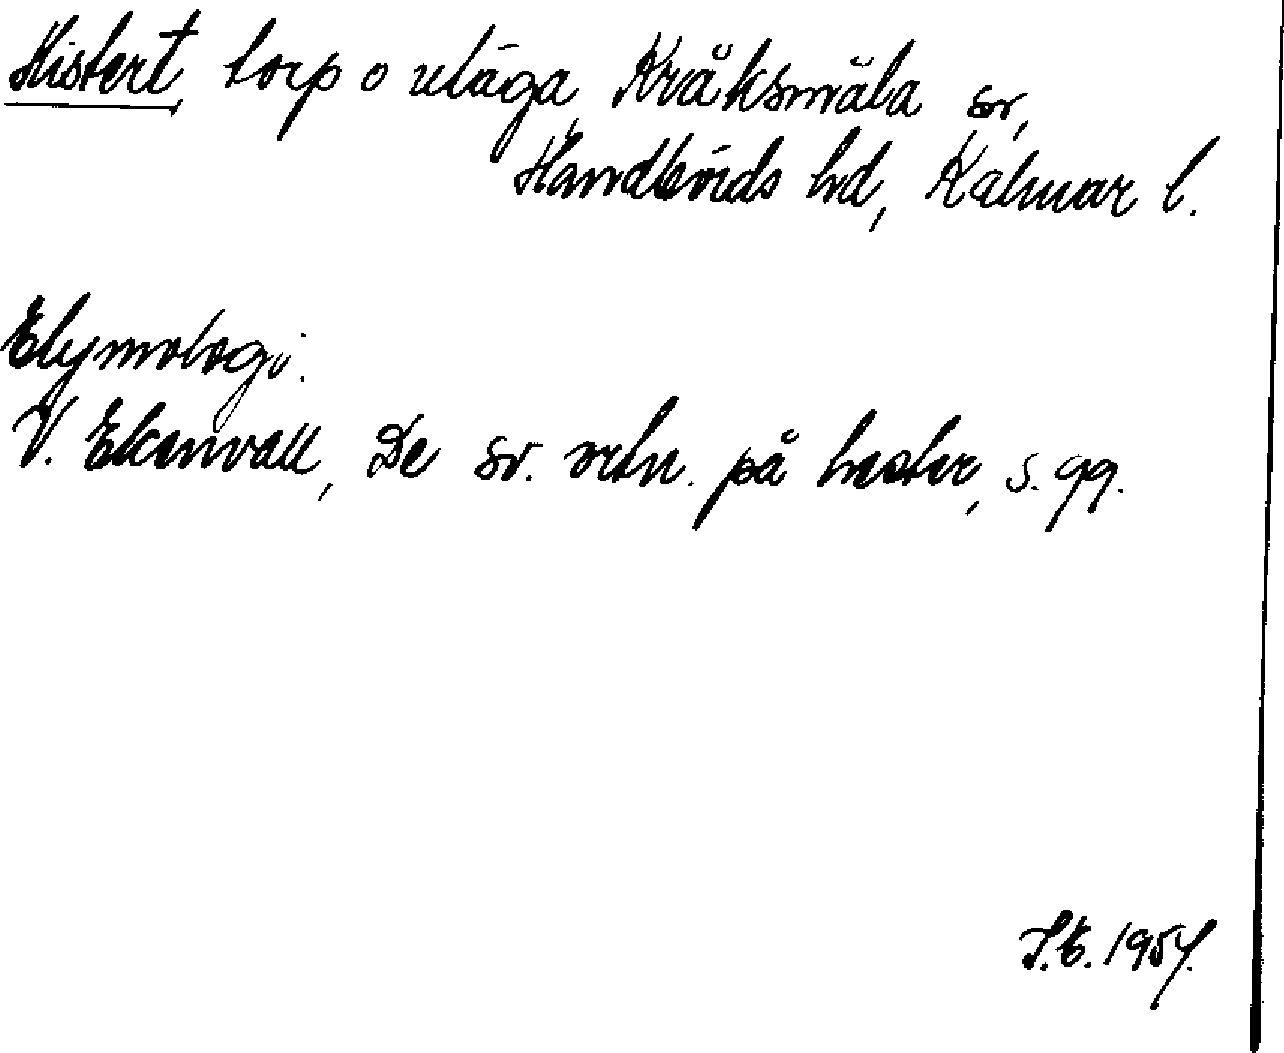 Histert, torp o utäga, Kråksmåla sn,
Handbörds hd, Kalmar l.
Etymologi:
V. Ekenvall, De sv. ortn. på hester, s. 99.
S.E. 1957.